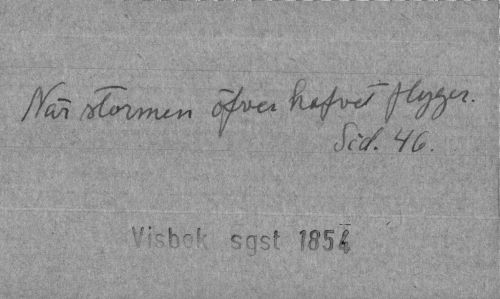 När stormen öfver hafvet flyger.
Sid. 46.
Visbok sgst 185